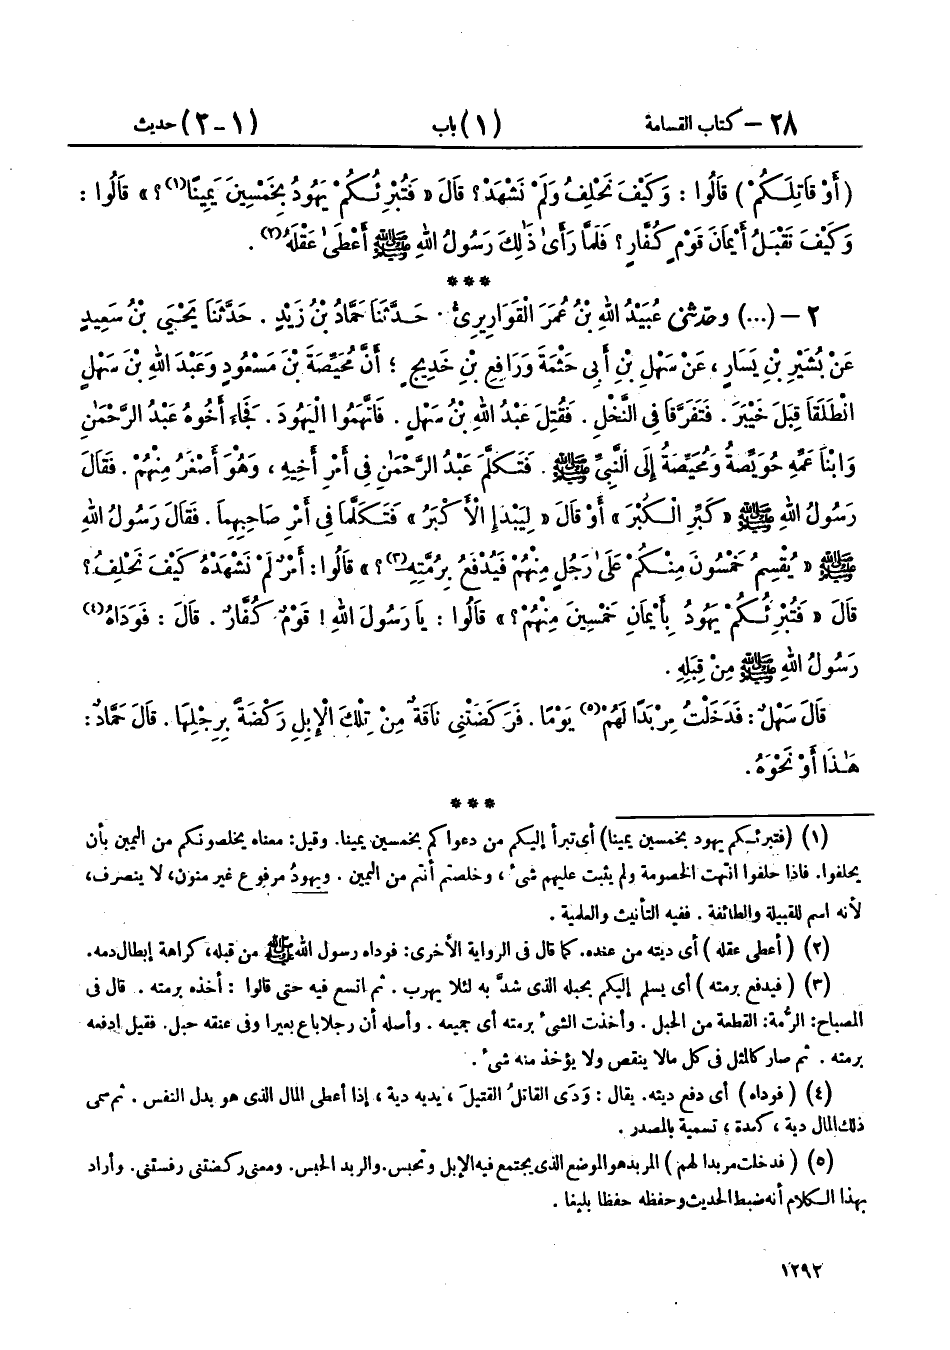 ٢٨ – كتاب القسامة (١) باب (١ – ٢) حديث
(أَوْ قَاتِلَكُمْ) قَالُوا : وَكَيْفَ نَحْلِفُ وَلَمْ نَشْهَدْ؟ قَالَ « فَتُبْرِئُكُمْ يَهُودُ بِخَمْسِينَ يَمِينًا(١)؟ » قَالُوا :
وَكَيْفَ نَقْبَلُ أَيْمَانَ قَوْمٍ كُفَّارٍ؟ فَلَمَّا رَأَىٰ ذَٰلِكَ رَسُولُ اللهِ ﷺ أَعْطَىٰ عَقْلَهُ(٢).
***
٢ – (...) وحَدَّثَنِي عُبَيْدُ اللهِ بْنُ عُمَرَ الْقَوَارِيرِيُّ . حَدَّثَنَا حَمَّادُ بْنُ زَيْدٍ . حَدَّثَنَا يَحْيَىٰ بْنُ سَعِيدٍ
عَنْ بُشَيْرِ بْنِ يَسَارٍ ، عَنْ سَهْلِ بْنِ أَبِي حَثْمَةَ وَرَافِعِ بْنِ خَدِيجٍ ؛ أَنَّ مُحَيِّصَةَ بْنَ مَسْعُودٍ وَعَبْدَ اللهِ بْنَ سَهْلٍ
انْطَلَقَا قِبَلَ خَيْبَرَ . فَتَفَرَّقَا فِي النَّخْلِ . فَقُتِلَ عَبْدُ اللهِ بْنُ سَهْلٍ . فَاتَّهَمُوا الْيَهُودَ . فَجَاءَ أَخُوهُ عَبْدُ الرَّحْمَٰنِ
وَابْنَا عَمِّهِ حُوَيِّصَةُ وَمُحَيِّصَةُ إِلَى النَّبِيِّ ﷺ . فَتَكَلَّمَ عَبْدُ الرَّحْمَٰنِ فِي أَمْرِ أَخِيهِ ، وَهُوَ أَصْغَرُ مِنْهُمْ . فَقَالَ
رَسُولُ اللهِ ﷺ « كَبِّرِ الْكُبْرَ » أَوْ قَالَ « لِيَبْدَإِ الْأَكْبَرُ » فَتَكَلَّمَا فِي أَمْرِ صَاحِبِهِمَا . فَقَالَ رَسُولُ اللهِ
ﷺ « يُقْسِمُ خَمْسُونَ مِنْكُمْ عَلَىٰ رَجُلٍ مِنْهُمْ فَيُدْفَعُ بِرُمَّتِهِ(٣)؟ » قَالُوا : أَمْرٌ لَمْ نَشْهَدْهُ كَيْفَ نَحْلِفُ؟
قَالَ « فَتُبْرِئُكُمْ يَهُودُ بِأَيْمَانِ خَمْسِينَ مِنْهُمْ؟ » قَالُوا : يَا رَسُولَ اللهِ ! قَوْمٌ كُفَّارٌ . قَالَ : فَوَدَاهُ(٤)
رَسُولُ اللهِ ﷺ مِنْ قِبَلِهِ .
قَالَ سَهْلٌ : فَدَخَلْتُ مِرْبَدًا لَهُمْ(٥) يَوْمًا . فَرَكَضَتْنِي نَاقَةٌ مِنْ تِلْكَ الْإِبِلِ رَكْضَةً بِرِجْلِهَا . قَالَ حَمَّادٌ :
هَٰذَا أَوْ نَحْوَهُ .
***
(١) (فتبرئكم يهود بخمسين يمينا) أى تبرأ إليكم من دعواكم بخمسين يمينا. وقيل: معناه يخلصونكم من اليمين بأن
يحلفوا. فاذا حلفوا انتهت الخصومة ولم يثبت عليهم شىء ، وخلصتم أنتم من اليمين . ويهودُ مرفوع غير منون، لا ينصرف،
لأنه اسم للقبيلة والطائفة . ففيه التأنيث والعلمية .
(٢) (أعطى عقله) أى ديته من عنده. كما قال فى الرواية الأخرى: فوداه رسول الله ﷺ من قبله، كراهة إبطال دمه.
(٣) (فيدفع برمته) أى يسلم إليكم بحبله الذى شدَّ به لئلا يهرب . ثم اتسع فيه حتى قالوا : أخذه برمته . قال فى
المصباح: الرُّمة: القطعة من الحبل . وأخذت الشىء برمته أى جميعه . وأصله أن رجلا باع بعيرا وفى عنقه حبل. فقيل ادفعه
برمته . ثم صار كالمثل فى كل مالا ينقص ولا يؤخذ منه شىء .
(٤) (فوداه) أى دفع ديته. يقال : وَدَى القاتلُ القتيلَ ، يديه دية ، إذا أعطى المال الذى هو بدل النفس . ثم سمى
ذلك المال دية ، كعدة ، تسمية بالمصدر .
(٥) (فدخلت مربدا لهم) المربد هو الموضع الذى يجتمع فيه الإبل وتحبس. والربد الحبس. ومعنى ركضتنى رفستنى. وأراد
بهذا الكلام أنه ضبط الحديث وحفظه حفظا بليغا .
١٢٩٢